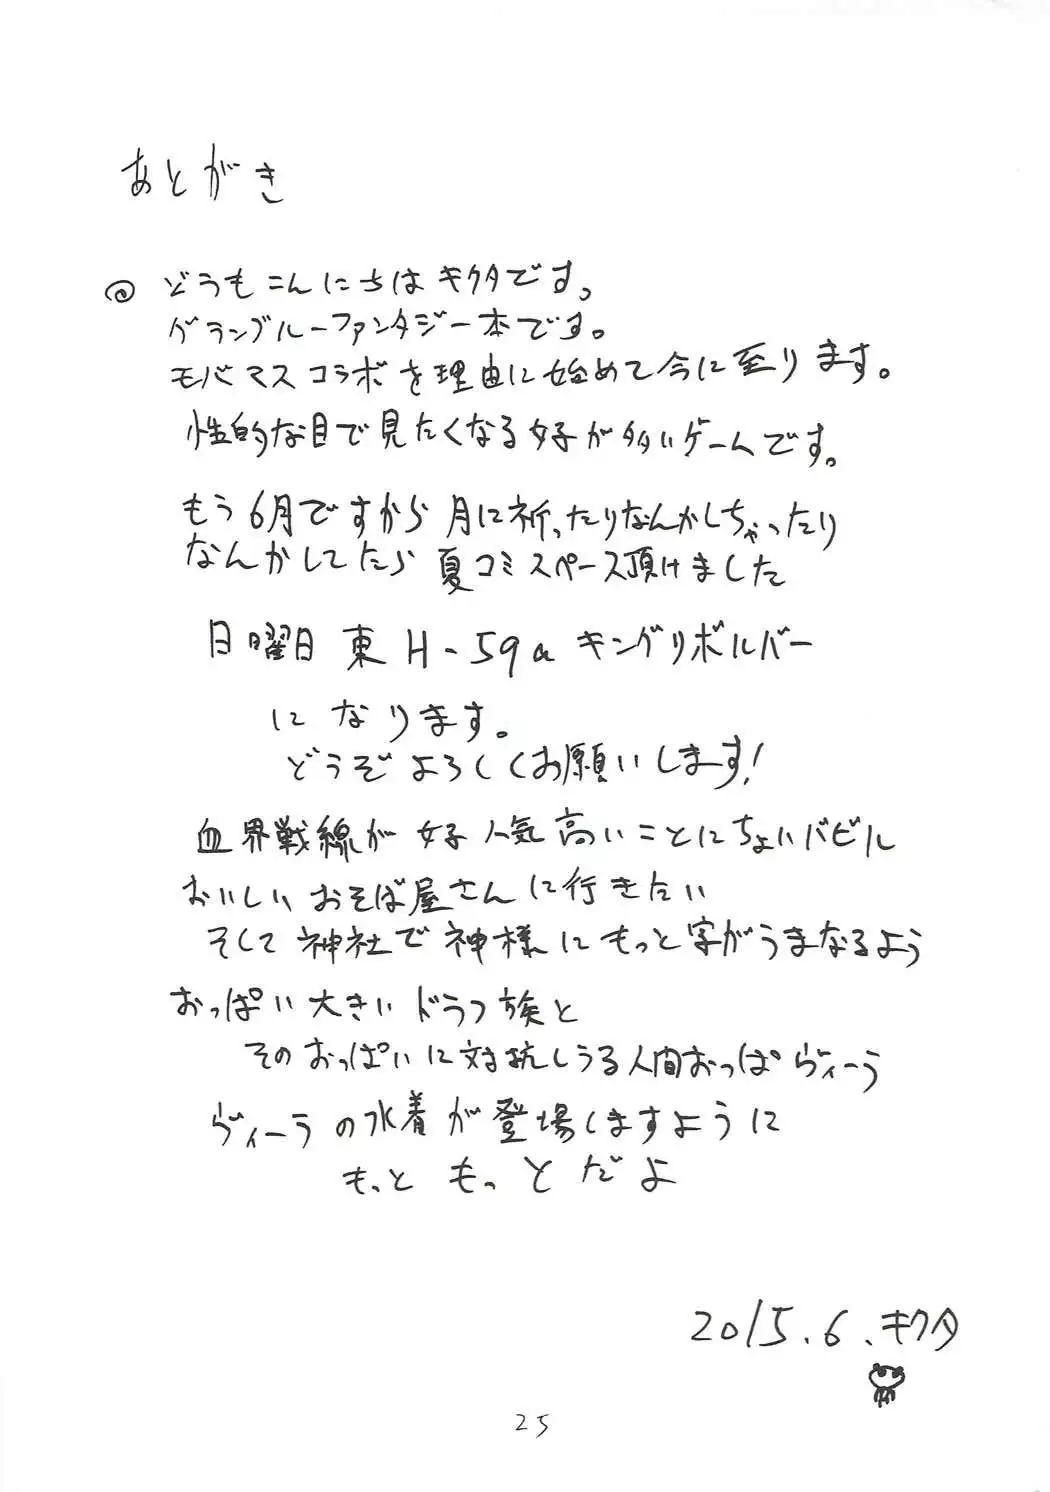 あとがき
◎ どうもこんにちはキクタです。
グランブルーファンタジー本です。
モバマスコラボを理由に始めて今に至ります。
性的な目で見たくなる女子が多いゲームです。
もう6月ですから月に祈ったりなんかしちゃったり
なんかしてたら夏コミスペース頂けました
日曜日 東 H-59a キングリボルバー
になります。
どうぞよろしくお願いします!
血界戦線が女子人気高いことにちょいバビル
おいしいおそば屋さんに行きたい
そして神社で神様にもっと字がうまなるよう
おっぱい大きいドラフ族と
そのおっぱいに対抗しうる人間おっぱヴィーラ
ヴィーラの水着が登場しますように
もっともっとだよ
2015.6.キクタ
25